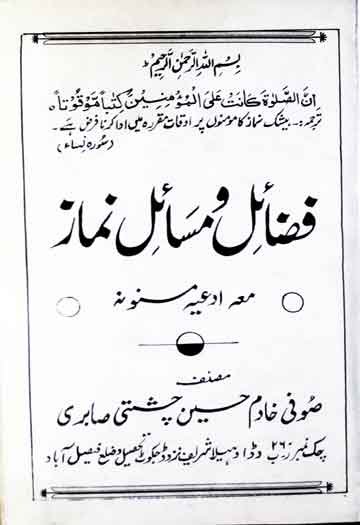 بِسْمِ اللهِ الرَّحْمٰنِ الرَّحِیْمِ
اِنَّ الصَّلٰوةَ كَانَتْ عَلَى الْمُؤْمِنِیْنَ كِتٰبًا مَّوْقُوْتًا
ترجمہ:۔ بیشک نماز کا مومنوں پر اوقات مقررہ میں ادا کرنا فرض ہے۔
(سورہ نساء)
فضائل و مسائل نماز
معہ ادعیہ مسنونہ
مصنف
صوفی خادم حسین چشتی صابری
چک نمبر ۲۶۰ رب ڈڈا و ہیلا شریف نزد ڈجکوٹ تحصیل و ضلع فیصل آباد